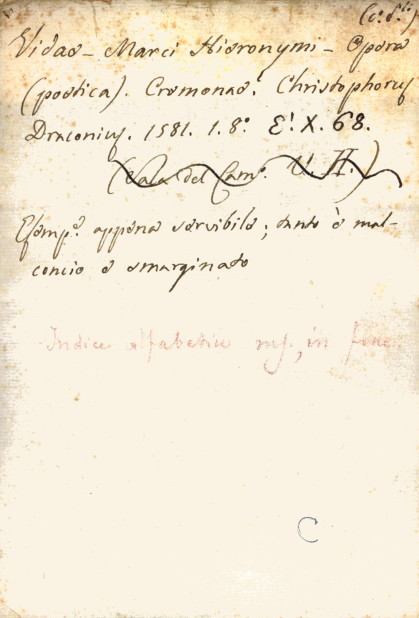 (c. d.)
Vidae - Marci Hieronymi - Opera
(poetica). Cremonae. Christophorus
Draconius. 1581. 1. 8°. E! X. 68.
(Sala del Cam°. U. II.)
Esemp.e appena servibile; tanto è mal-
concio e smarginato
Indice alfabetico ms, in fine.
C